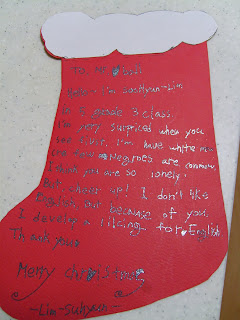 To. Mr
Hello I'm SooHyun-Lim
in grade 3 class
I'm very surprised when you
see river, I'm have white
and Negroes are common
I think you are so lonely!
But cheer up! I don't like
English but because of you
I develop a liking for English
Thank you
Merry christmas
-Lim-SuHyun-